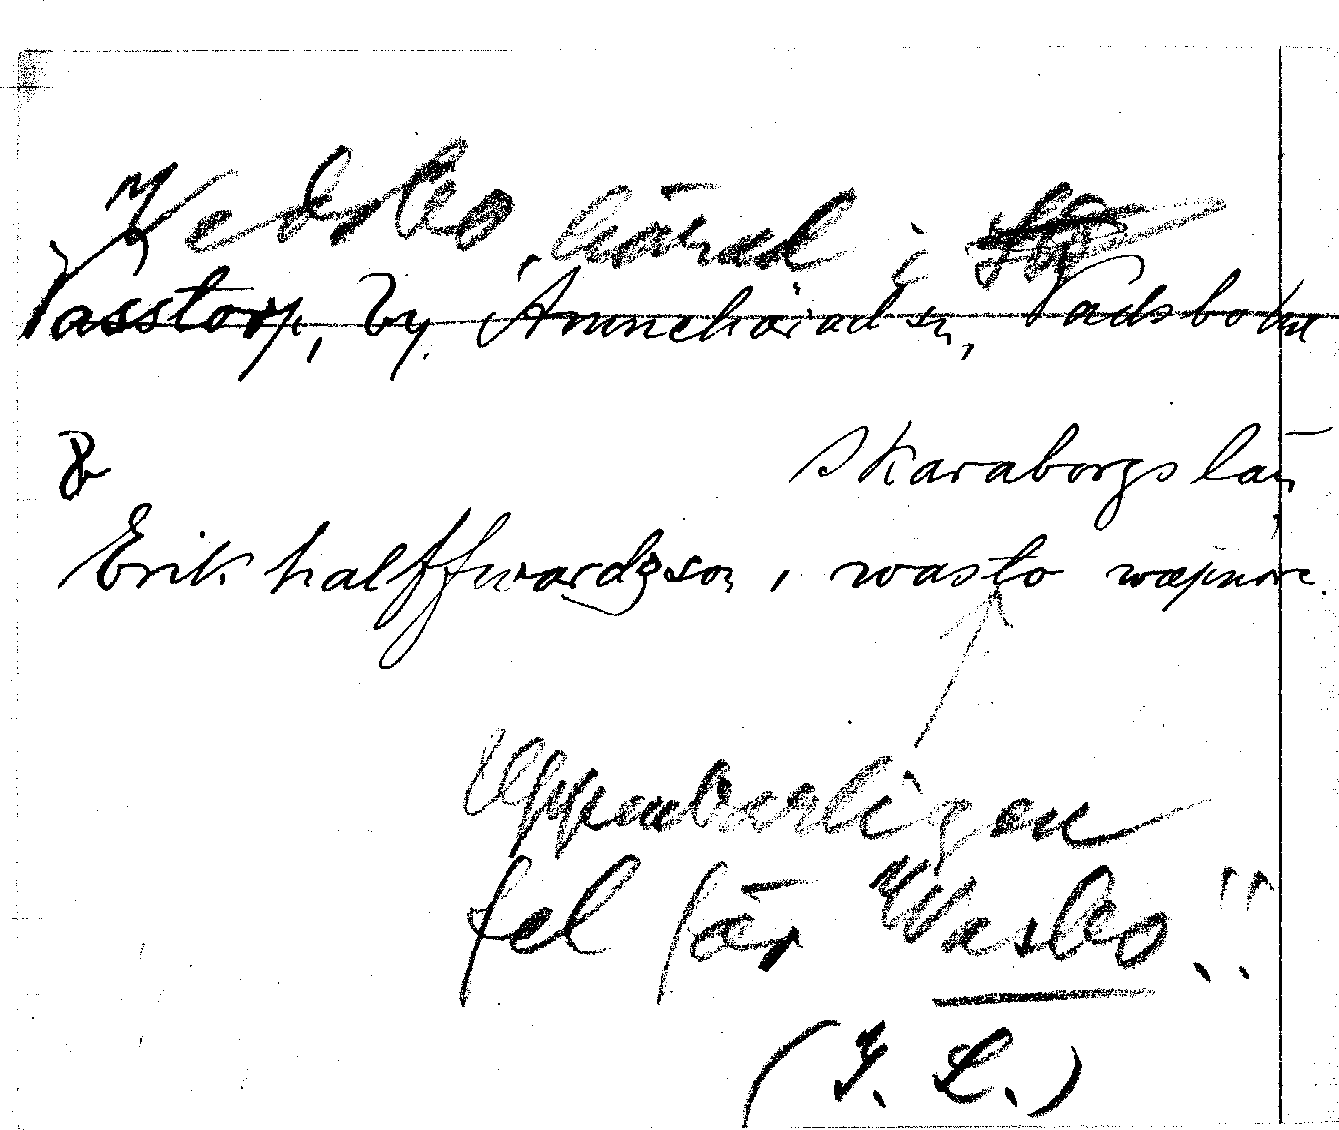 Vedsbo härad i
Vasstorp, by. Amnehärad sn, Vadsbo hd
Skaraborgs län
&
Erik halffwardzson, wasto wæpnare
Uppenbarligen
fel för Wasbo!!
(I. L.)